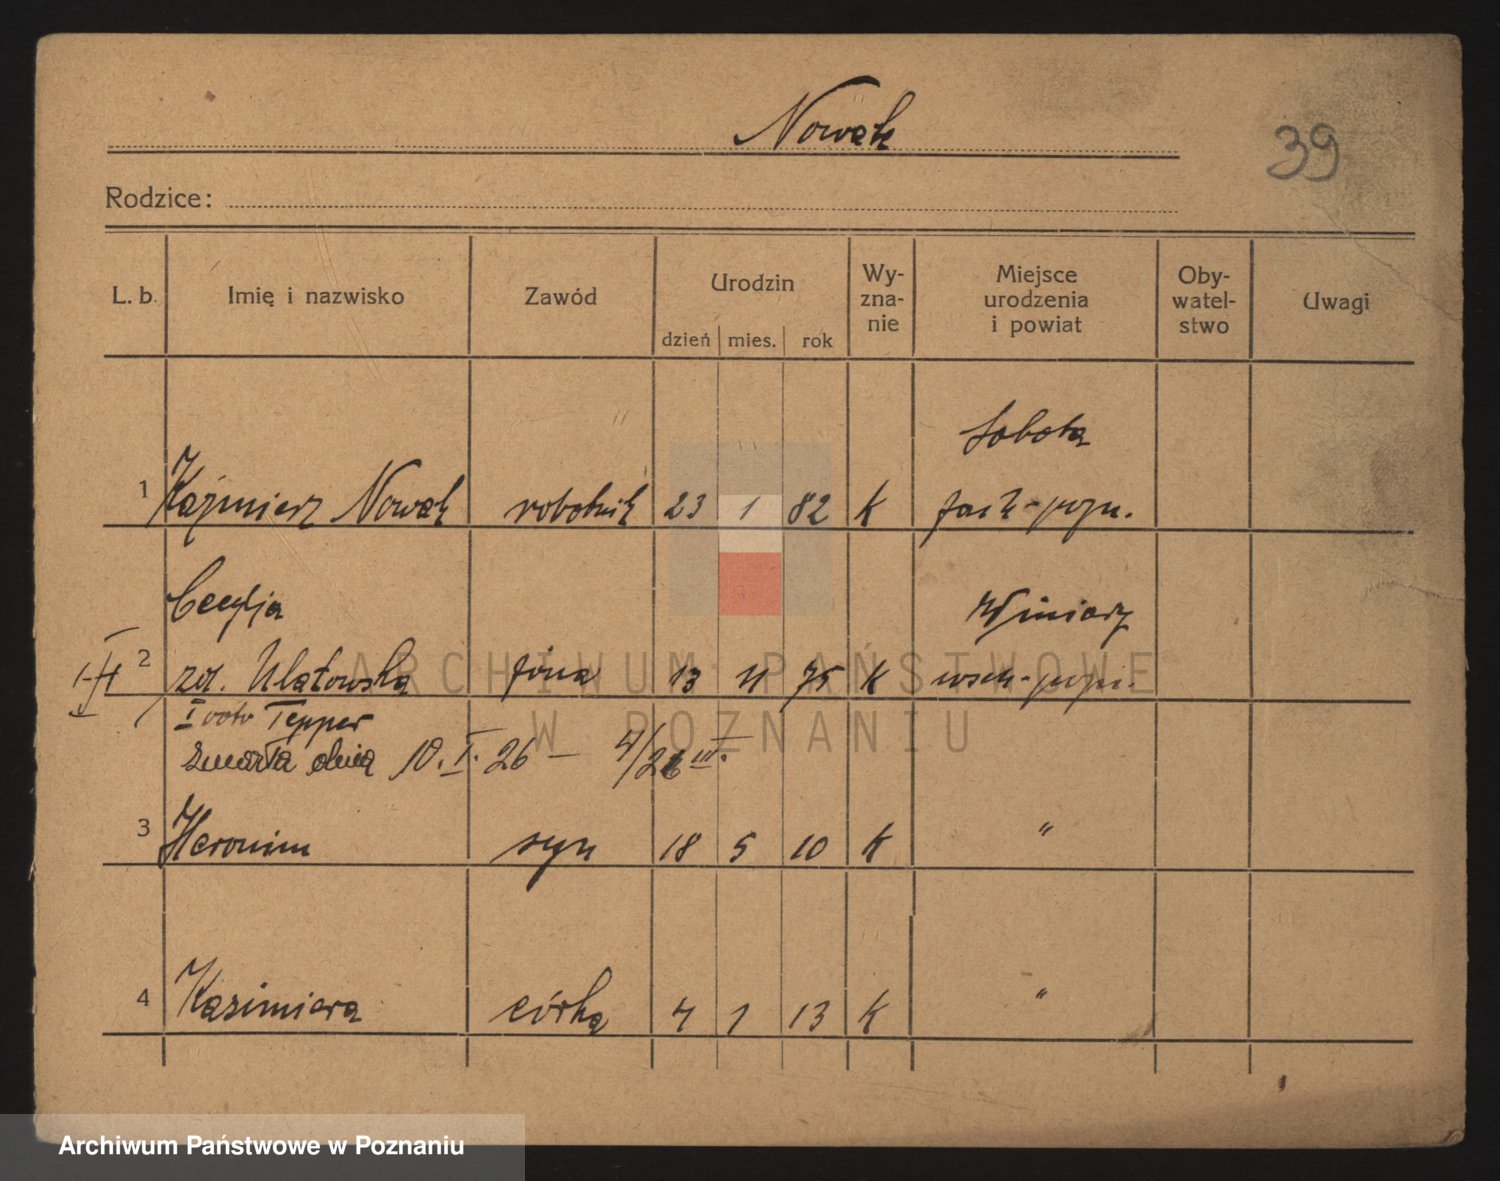 Nowak
39
Rodzice:
L. b. Imię i nazwisko Zawód Urodzin dzień mies. rok Wy-zna-nie Miejsce urodzenia i powiat Oby-watel-stwo Uwagi
Sobota
1 Kaźmierz Nowak robotnik 23 1 82 K zach-pozn.
Cecylja Winiary
2 zd. Ulatowska żona 13 11 75 K wsch-pozn.
I voto Tepper
zmarła dnia 10. I. 26 — 4/26 III.
3 Heronim syn 18 5 10 K "
4 Kazimiera córka 4 1 13 K "
ARCHIWUM PAŃSTWOWE
W POZNANIU
Archiwum Państwowe w Poznaniu